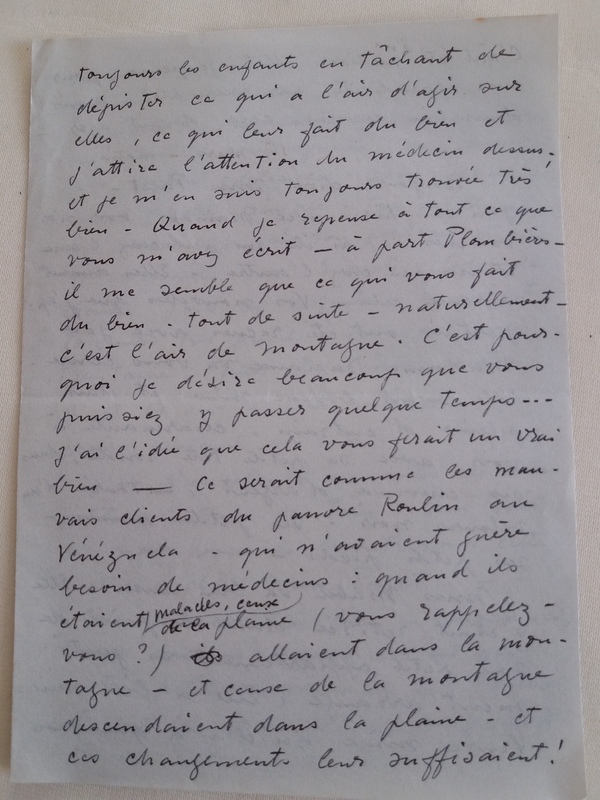 toujours les enfants en tâchant de
dépister ce qui a l'air d'agir sur
elles, ce qui leur fait du bien et
j'attire l'attention du médecin dessus.
et je m'en suis toujours trouvée très
bien - Quand je repense à tout ce que
vous m'avez écrit — à part Plombières -
il me semble que ce qui vous fait
du bien - tout de suite - naturellement -
c'est l'air de montagne. C'est pour-
quoi je désire beaucoup que vous
puissiez y passer quelque temps ---
j'ai l'idée que cela vous ferait un vrai
bien — Ce serait comme les mau-
vais clients du pauvre Roulin au
Vénézuela - qui n'avaient guère
besoin de médecins : quand ils
étaient malades, ceux
de la plaine (vous rappelez-
vous ?) allaient dans la mon-
tagne - et ceux de la montagne
descendaient dans la plaine - et
ces changements leur suffisaient !